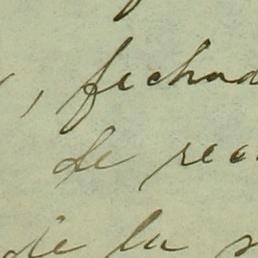 , fechad
de rec
de la